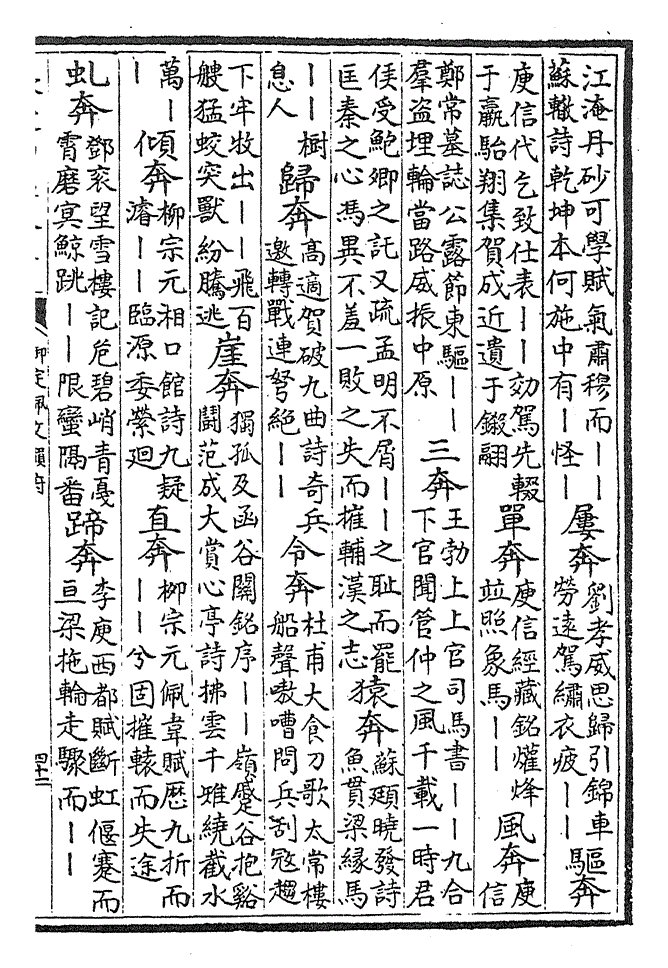 江淹丹砂可學賦氣肅穆而｜｜
蘇轍詩乾坤本何施中有｜怪｜
屢奔
劉孝威思歸引錦車
勞遠駕繡衣疲｜｜
驅奔
庾信代乞致仕表｜｜効駕先輟
于羸駘翔集賀成近遺于鎩翮
單奔
庾信經藏銘爟烽
竝照象馬｜｜
風奔
庾
信
鄭常墓誌公露節東驅｜｜
羣盜埋輪當路威振中原
三奔
王勃上上官司馬書｜｜九合
下官聞管仲之風千載一時君
侯受鮑卿之託又疏孟明不屑｜｜之耻而罷
匡秦之心馮異不羞一敗之失而摧輔漢之志
猿奔
蘇頲曉發詩
魚貫梁緣馬
｜｜樹
息人
歸奔
高適賀破九曲詩奇兵
邀轉戰連弩絕｜｜
令奔
杜甫大食刀歌太常樓
船聲嗷嘈問兵刮寇趨
下牢牧出｜｜飛百
艘猛蛟突獸紛騰逃
崖奔
獨孤及函谷關銘序｜｜嶺蹙谷抱谿
鬬范成大賞心亭詩拂雲千雉繞截水
萬｜
｜
傾奔
柳宗元湘口館詩九疑
濬｜｜臨源委縈迴
直奔
柳宗元佩韋賦歷九折而
｜｜兮固摧轅而失途
虬奔
鄧衮望雪樓記危碧峭青戞
霄磨冥鯨跳｜｜限蠻隔番
蹄奔
李庾西都賦斷虹偃蹇而
亘梁拖輪走驟而｜｜
御定佩文韻府